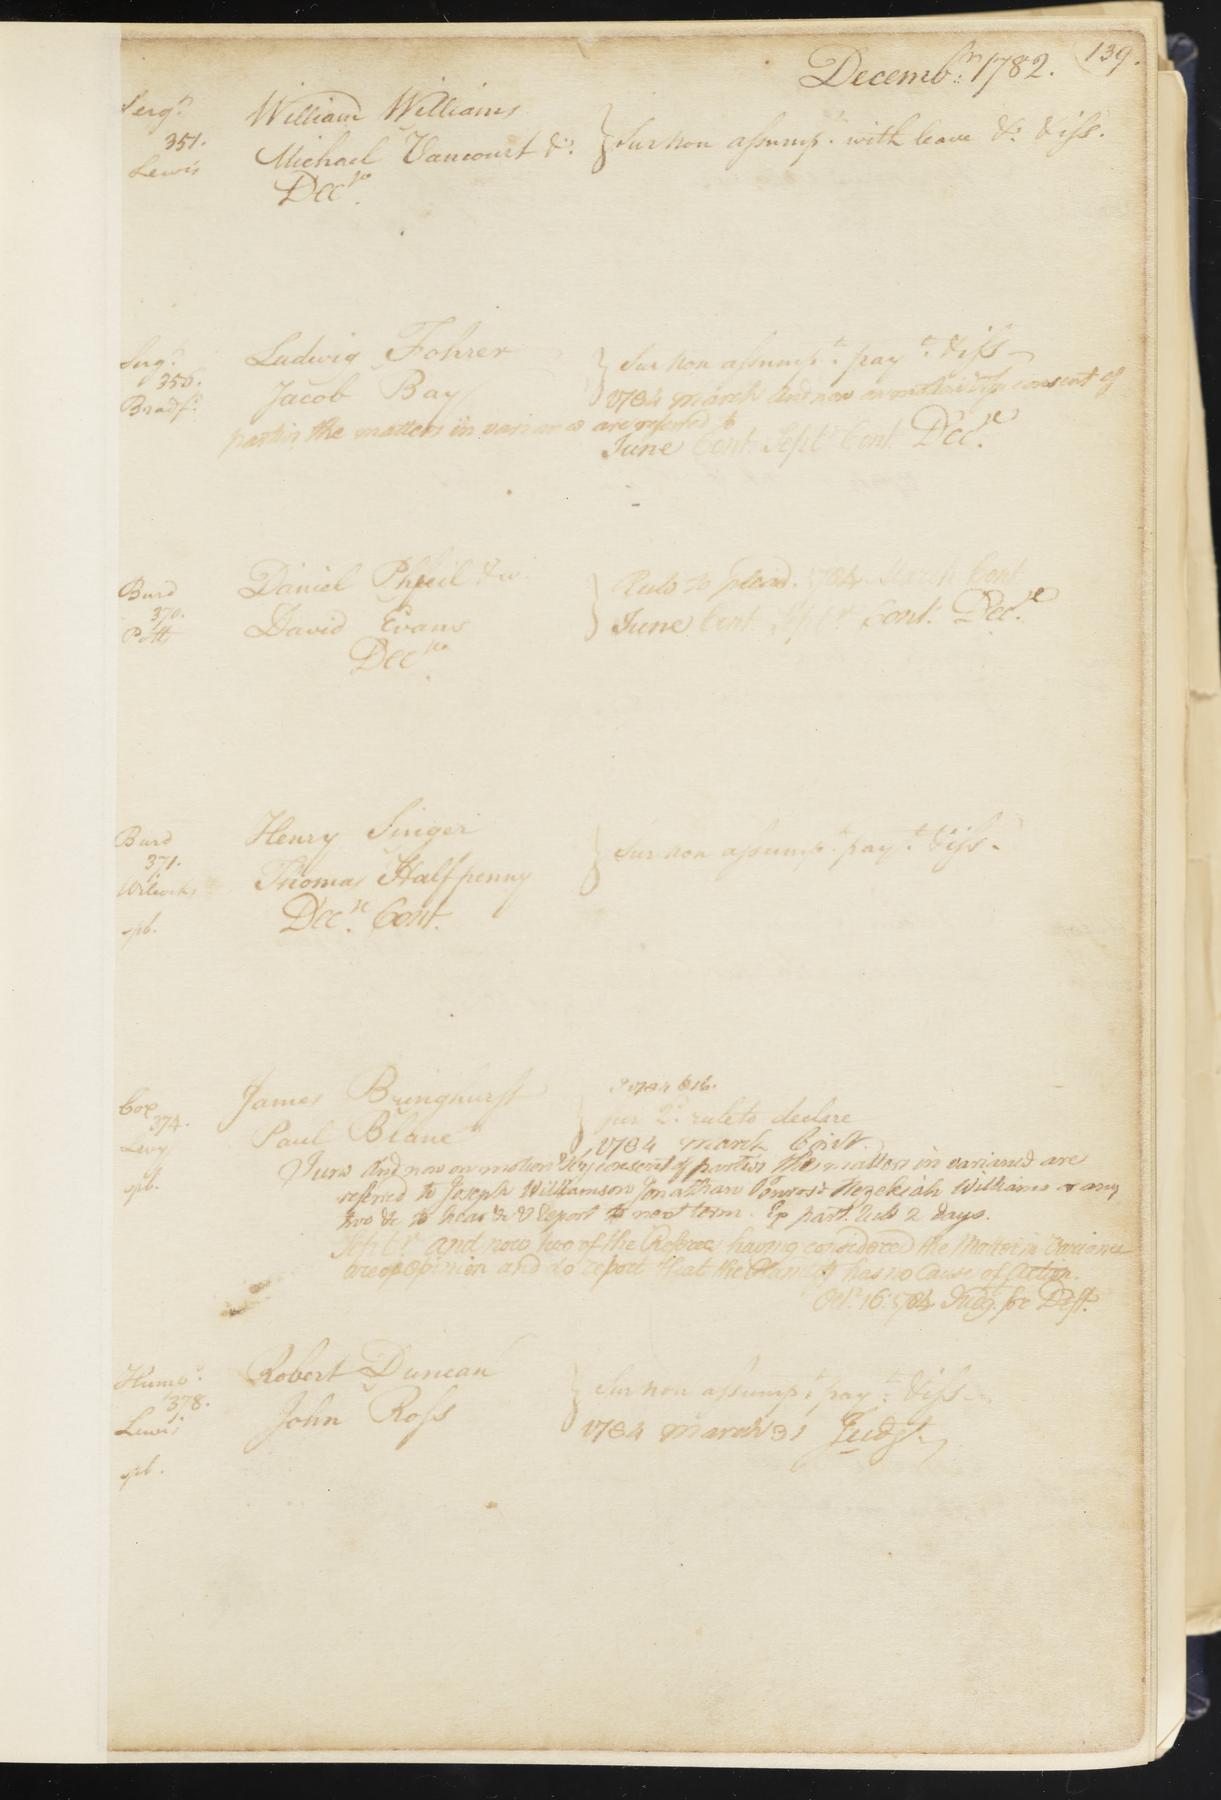 Decemb:r 1782. 139.
Serg:t William Williams
351. Michael Vancourt &c. } Sur non assump:t with leave &c. & iss.
Lewis Dec.re
Serg:t Ludwig Fohrer } Sur non assump:t pay:t & iss
356. Jacob Bay 1784 March And now on motion & by consent of
Bradf:d
parties the matters in variance are referred to
June Cont. Sept.r Cont. Dec.re
Burd Daniel Phfeil & w. } Rule to plead. 1784 March Cont.
370. David Evans June Cont. Sept.r Cont. Dec.re
Pett Dec.re
Burd Henry Singer } Sur non assump:t pay:t & iss
371. Thomas Halfpenny
Wilcocks Dec.re Cont.
pb.
Cox James Bringhurst
374. } jur 2.d rule to declare
Levy Paul Blane 1784 March Cont.
June And now on motion & by consent of parties the matters in variance are
pb. refered to Joseph Williamson Jonathan Penrose Hezekiah Williams or any
two &c to hear &c & Report to next term. Ex part. rule 2 days.
Sept.r and now two of the Referees having considered the Matter in Variance
are of opinion and do report that the Plaintiff has no Cause of Action.
Oct.r 16. 1784 Judg. for Deft.
Humb.
Robert Duncan } Sur non assump:t pay:t & iss
378. John Ross 1784 March 31 Judgt.
Lewis
pb.